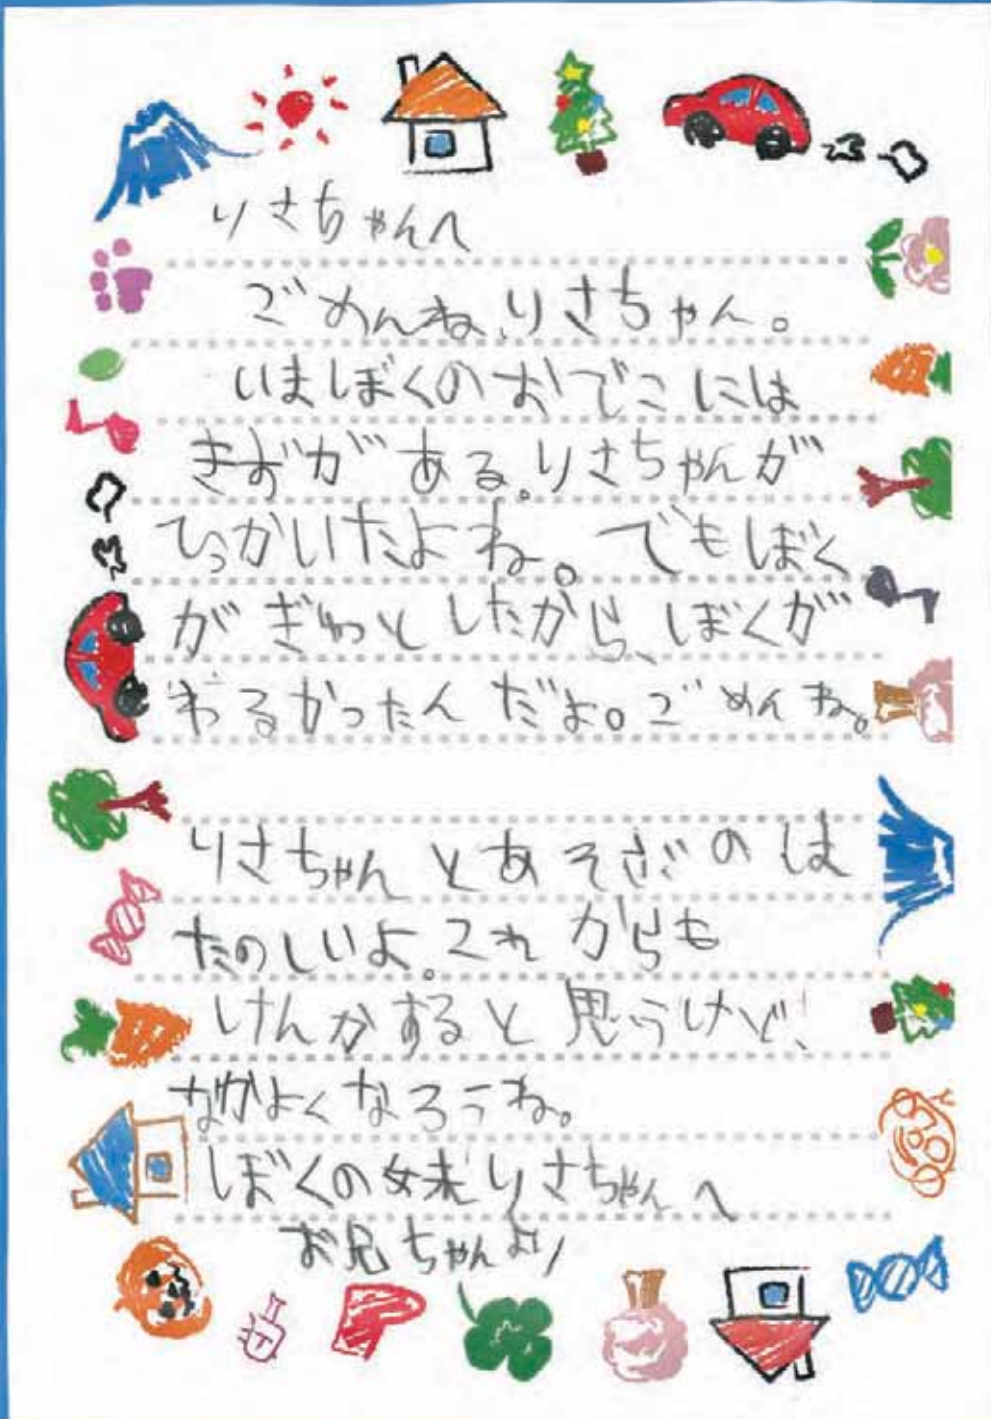 りさちゃんへ
ごめんね、りさちゃん。
いまぼくのおでこには
きずがある。りさちゃんが
ひっかいたよね。でもぼく
がぎゅっとしたから、ぼくが
わるかったんだよ。ごめんね。
りさちゃんとあそぶのは
たのしいよ。これからも
けんかすると思うけど、
なかよくなろうね。
ぼくの妹りさちゃんへ
お兄ちゃんより